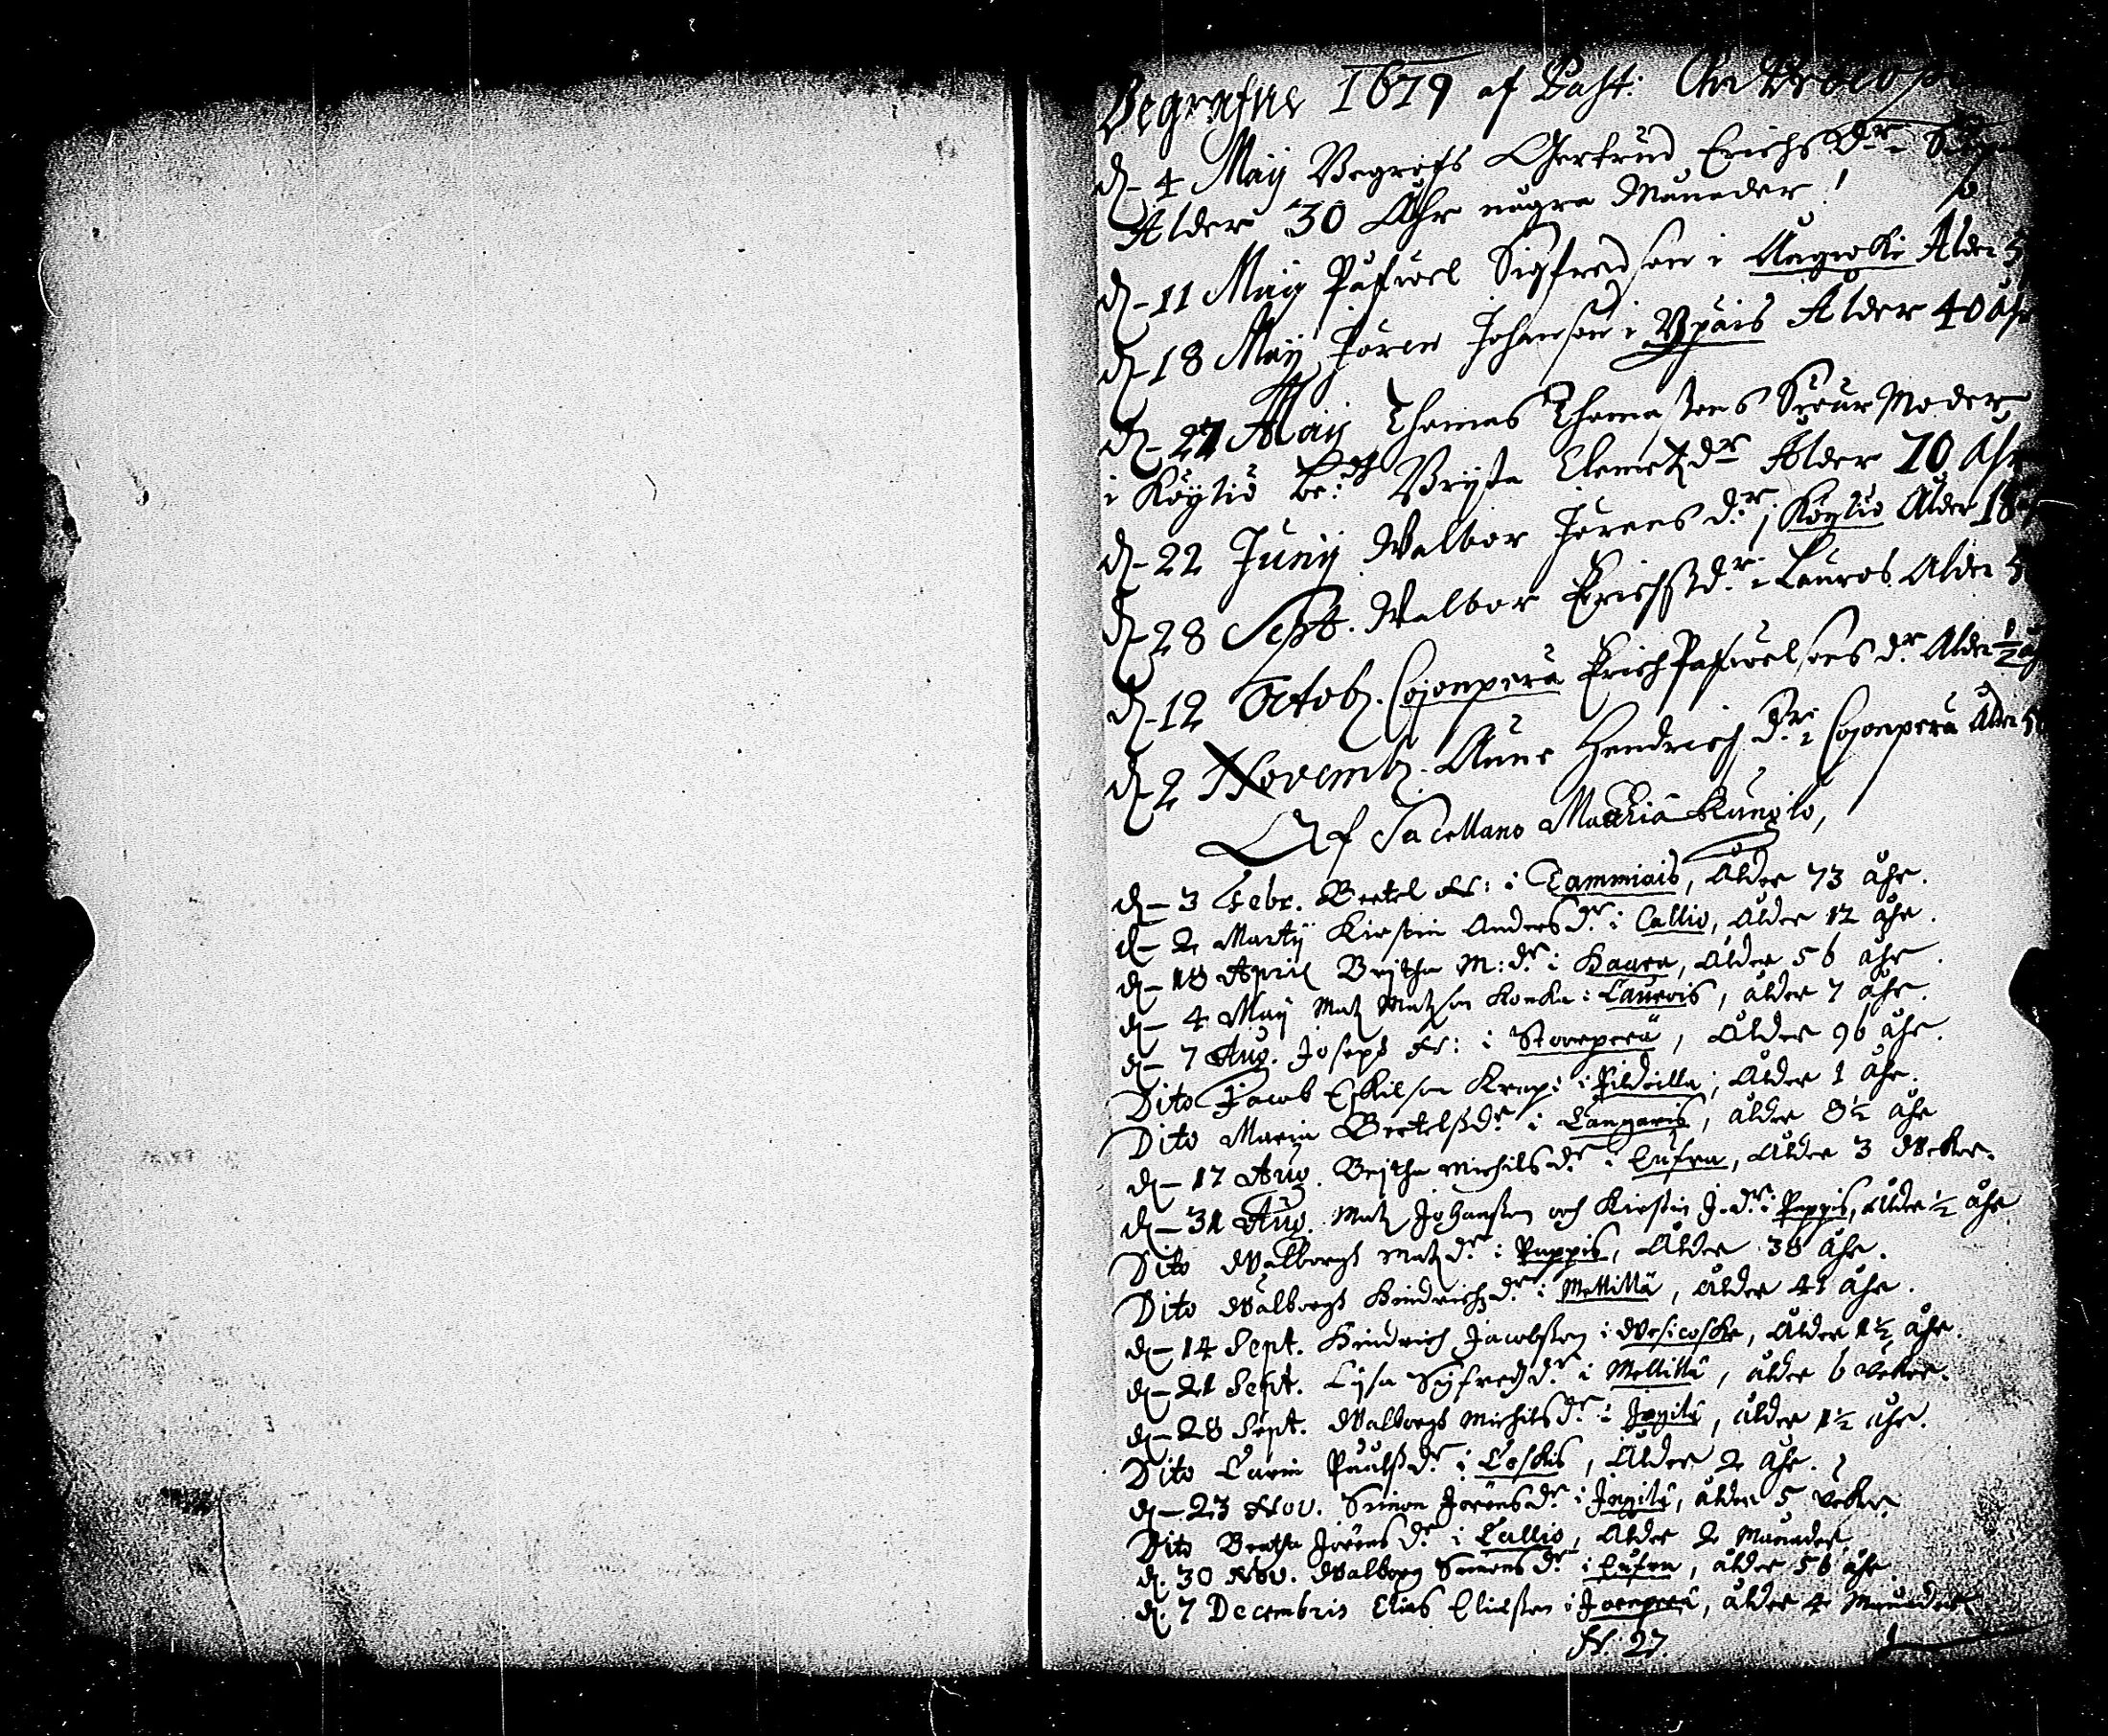 Begrafne 1679 af Past:
d. 4 Maij Begrofs Gertrud Erichs Dr i
Ålder 30 Åhr någre Månader!
d. 11 Maij Påfwel Sigfredson i Ålder
d. 18 Maij Jören Johanson i Vpäis Ålder 40 Åhr
d. 27 Maij Thomas Thomasons Swärmoder
i Köyliö be:d Brijta Clemetz dr Ålder 70 Åhr
d. 22 Junij Walbor Jörens dr i Köyliö Ålder 18
d. 28 Sept. Walbor Erichs dr i Lauros Ålder
d. 12 Octob. Cojonperä Erich Påfwelsons dr Ålder ½ åhr
d. 2 Novemb. Anne Hendrich dr i Cojonperä Ålder
Af Sacellano Matthia
d. 3 Febr. Bertel i Tammiais, Ålder 73 åhr.
d. 2 Martij Kirstin Anders dr i Callio, Ålder 12 åhr.
d. 18 April Brijtha M: dr i Haara, Ålder 56 åhr.
d. 4 Maij Matz Matzson i Laurois, ålder 7 åhr.
d. 7 Aug. Joseph i Storeperä, Ålder 96 åhr.
Dito Jacob Eskilson i Ålder 1 åhr.
Dito Maria Bertels dr i Cangaris, ålder 8½ åhr
d. 17 Aug. Brijtha Michils dr i Ålder 3 weker.
d. 31 Aug. Matz Johanson och Kirstin J. dr i Pappis, ålder ½ åhr
Dito Walborgh Matz dr i Pappis, Ålder 38 åhr.
Dito Walborgh Hindrichz dr i Mellilä, ålder 41 åhr.
d. 14 Sept. Hindrich Jacobson i Wesicoske, Ålder 1½ åhr.
d. 21 Sept. Lijsa Sigfredz dr i Mellilä, ålder 6 weker.
d. 28 Sept. Walborgh Michils dr i ålder 1½ åhr.
Dito Carin Påuls dr i Coskis, Ålder 2 åhr.
d. 23 Nov. Simon Jörens dr i ålder 5 weker.
Dito Jörens dr i Callio, Ålder 2 Månader
d. 30 Nov. Walborg Simons dr i ålder 56 åhr.
d. 7 Decembris Elias Eliasson i ålder 4 Månader
N. 27.